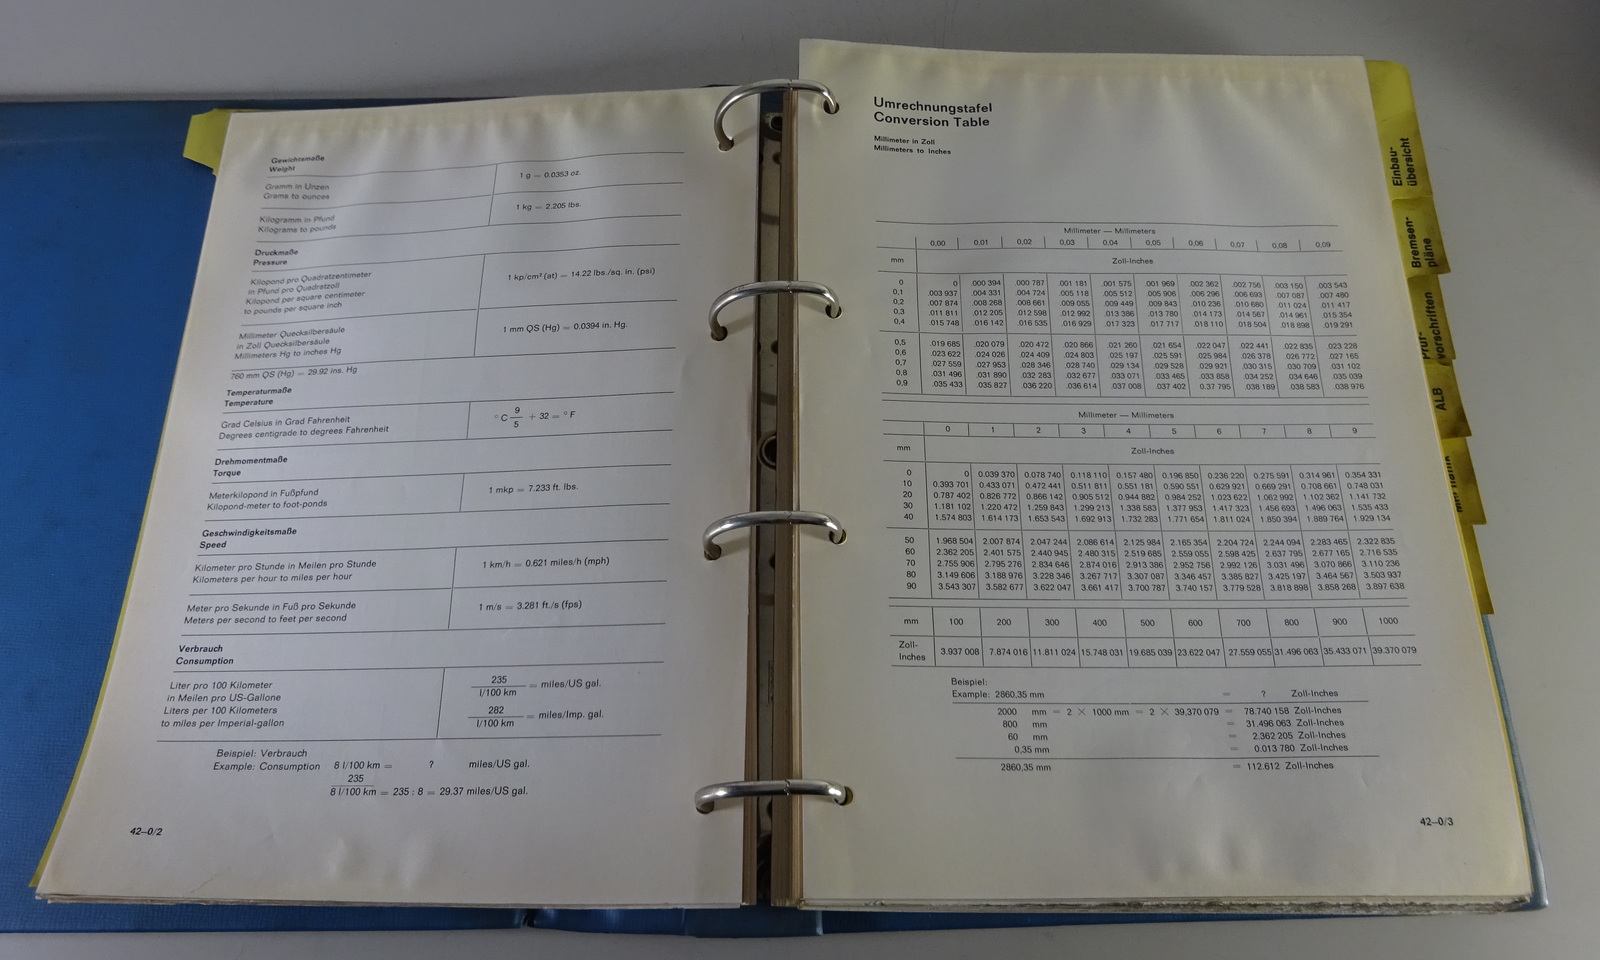 Gewichtsmaße
Weight
Gramm in Unzen
Grams to ounces
1 g = 0.0353 oz.
Kilogramm in Pfund
Kilograms to pounds
1 kg = 2.205 lbs.
Druckmaße
Pressure
Kilopond pro Quadratzentimeter
in Pfund pro Quadratzoll
Kilopond per square centimeter
to pounds per square inch
1 kp/cm² (at) = 14.22 lbs./sq. in. (psi)
Millimeter Quecksilbersäule
in Zoll Quecksilbersäule
Millimeters Hg to inches Hg
1 mm QS (Hg) = 0.0394 in. Hg.
760 mm QS (Hg) = 29.92 ins. Hg
Temperaturmaße
Temperature
Grad Celsius in Grad Fahrenheit
Degrees centigrade to degrees Fahrenheit
°C 9/5 + 32 = °F
Drehmomentmaße
Torque
Meterkilopond in Fußpfund
Kilopond-meter to foot-ponds
1 mkp = 7.233 ft. lbs.
Geschwindigkeitsmaße
Speed
Kilometer pro Stunde in Meilen pro Stunde
Kilometers per hour to miles per hour
1 km/h = 0.621 miles/h (mph)
Meter pro Sekunde in Fuß pro Sekunde
Meters per second to feet per second
1 m/s = 3.281 ft./s (fps)
Verbrauch
Consumption
Liter pro 100 Kilometer
in Meilen pro US-Gallone
Liters per 100 Kilometers
to miles per Imperial-gallon
235
l/100 km = miles/US gal.
282
l/100 km = miles/Imp. gal.
Beispiel: Verbrauch
Example: Consumption 8 l/100 km = ? miles/US gal.
235
8 l/100 km = 235 : 8 = 29.37 miles/US gal.
42–0/2
Umrechnungstafel
Conversion Table
Millimeter in Zoll
Millimeters to Inches
Millimeter — Millimeters
0,00 0,01 0,02 0,03 0,04 0,05 0,06 0,07 0,08 0,09
mm Zoll-Inches
0 0 .000 394 .000 787 .001 181 .001 575 .001 969 .002 362 .002 756 .003 150 .003 543
0,1 .003 937 .004 331 .004 724 .005 118 .005 512 .005 906 .006 296 .006 693 .007 087 .007 480
0,2 .007 874 .008 268 .008 661 .009 055 .009 449 .009 843 .010 236 .010 680 .011 024 .011 417
0,3 .011 811 .012 205 .012 598 .012 992 .013 386 .013 780 .014 173 .014 567 .014 961 .015 354
0,4 .015 748 .016 142 .016 535 .016 929 .017 323 .017 717 .018 110 .018 504 .018 898 .019 291
0,5 .019 685 .020 079 .020 472 .020 866 .021 260 .021 654 .022 047 .022 441 .022 835 .023 228
0,6 .023 622 .024 026 .024 409 .024 803 .025 197 .025 591 .025 984 .026 378 .026 772 .027 165
0,7 .027 559 .027 953 .028 346 .028 740 .029 134 .029 528 .029 921 .030 315 .030 709 .031 102
0,8 .031 496 .031 890 .032 283 .032 677 .033 071 .033 465 .033 858 .034 252 .034 646 .035 039
0,9 .035 433 .035 827 .036 220 .036 614 .037 008 .037 402 0.37 795 .038 189 .038 583 .038 976
Millimeter — Millimeters
0 1 2 3 4 5 6 7 8 9
mm Zoll-Inches
0 0 0.039 370 0.078 740 0.118 110 0.157 480 0.196 850 0.236 220 0.275 591 0.314 961 0.354 331
10 0.393 701 0.433 071 0.472 441 0.511 811 0.551 181 0.590 551 0.629 921 0.669 291 0.708 661 0.748 031
20 0.787 402 0.826 772 0.866 142 0.905 512 0.944 882 0.984 252 1.023 622 1.062 992 1.102 362 1.141 732
30 1.181 102 1.220 472 1.259 843 1.299 213 1.338 583 1.377 953 1.417 323 1.456 693 1.496 063 1.535 433
40 1.574 803 1.614 173 1.653 543 1.692 913 1.732 283 1.771 654 1.811 024 1.850 394 1.889 764 1.929 134
50 1.968 504 2.007 874 2.047 244 2.086 614 2.125 984 2.165 354 2.204 724 2.244 094 2.283 465 2.322 835
60 2.362 205 2.401 575 2.440 945 2.480 315 2.519 685 2.559 055 2.598 425 2.637 795 2.677 165 2.716 535
70 2.755 906 2.795 276 2.834 646 2.874 016 2.913 386 2.952 756 2.992 126 3.031 496 3.070 866 3.110 236
80 3.149 606 3.188 976 3.228 346 3.267 717 3.307 087 3.346 457 3.385 827 3.425 197 3.464 567 3.503 937
90 3.543 307 3.582 677 3.622 047 3.661 417 3.700 787 3.740 157 3.779 528 3.818 898 3.858 268 3.897 638
mm 100 200 300 400 500 600 700 800 900 1000
Zoll-
Inches 3.937 008 7.874 016 11.811 024 15.748 031 19.685 039 23.622 047 27.559 055 31.496 063 35.433 071 39.370 079
Beispiel:
Example: 2860,35 mm = ? Zoll-Inches
2000 mm = 2 × 1000 mm = 2 × 39,370 079 = 78.740 158 Zoll-Inches
800 mm = 31.496 063 Zoll-Inches
60 mm = 2.362 205 Zoll-Inches
0,35 mm = 0.013 780 Zoll-Inches
2860,35 mm = 112.612 Zoll-Inches
42–0/3
Einbau-
übersicht
Bremsen-
pläne
Prüf-
vorschriften
ALB